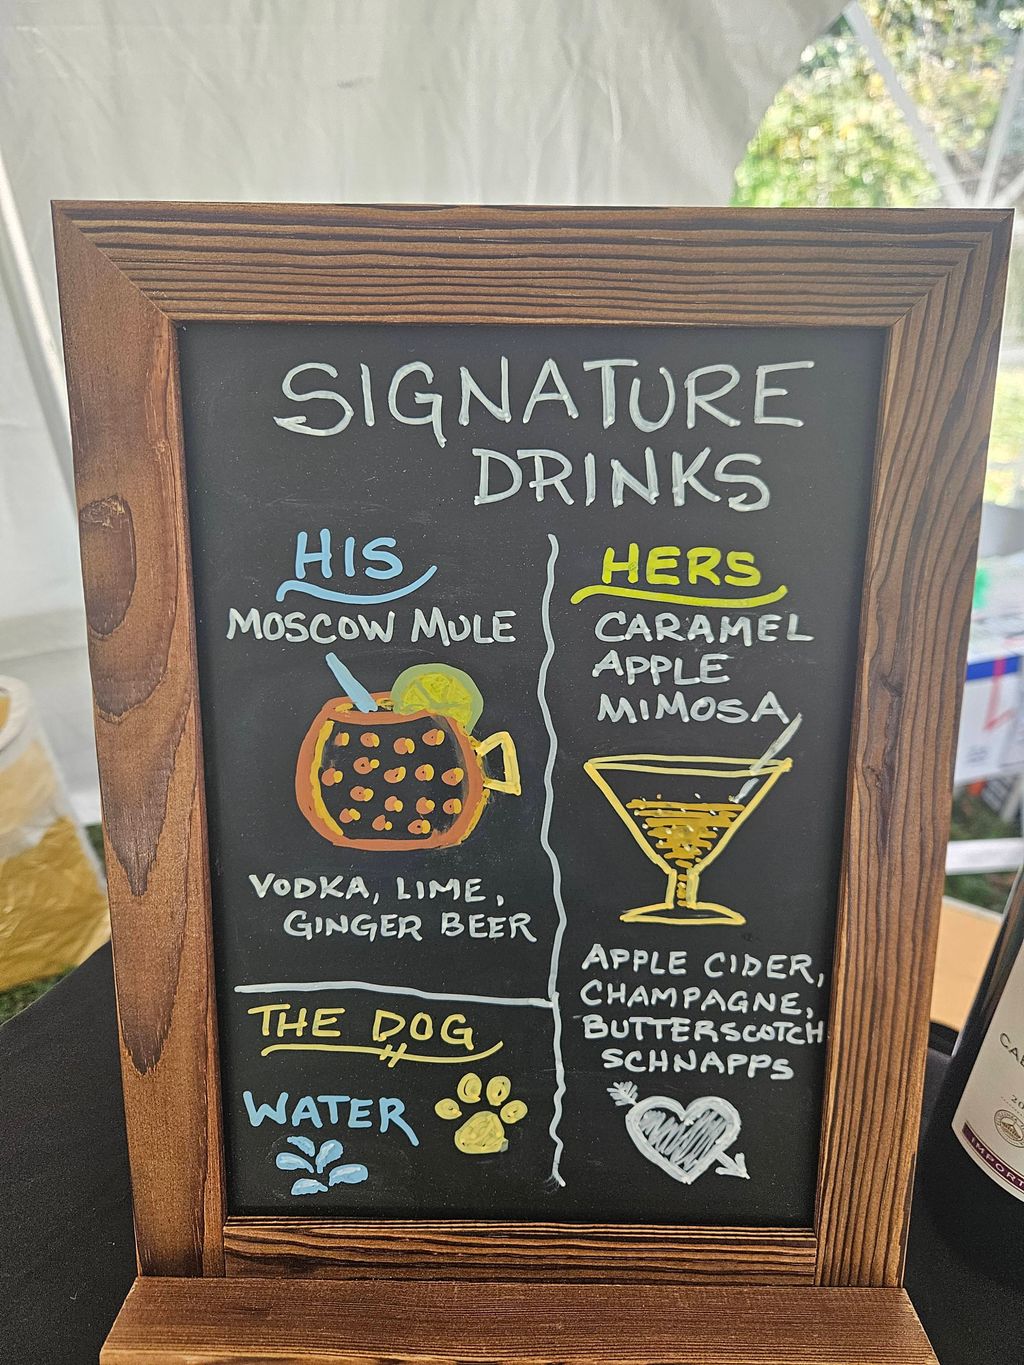 SIGNATURE
DRINKS
HIS
MOSCOW MULE
VODKA, LIME,
GINGER BEER
THE DOG
WATER
HERS
CARAMEL
APPLE
MIMOSA
APPLE CIDER,
CHAMPAGNE,
BUTTERSCOTCH
SCHNAPPS